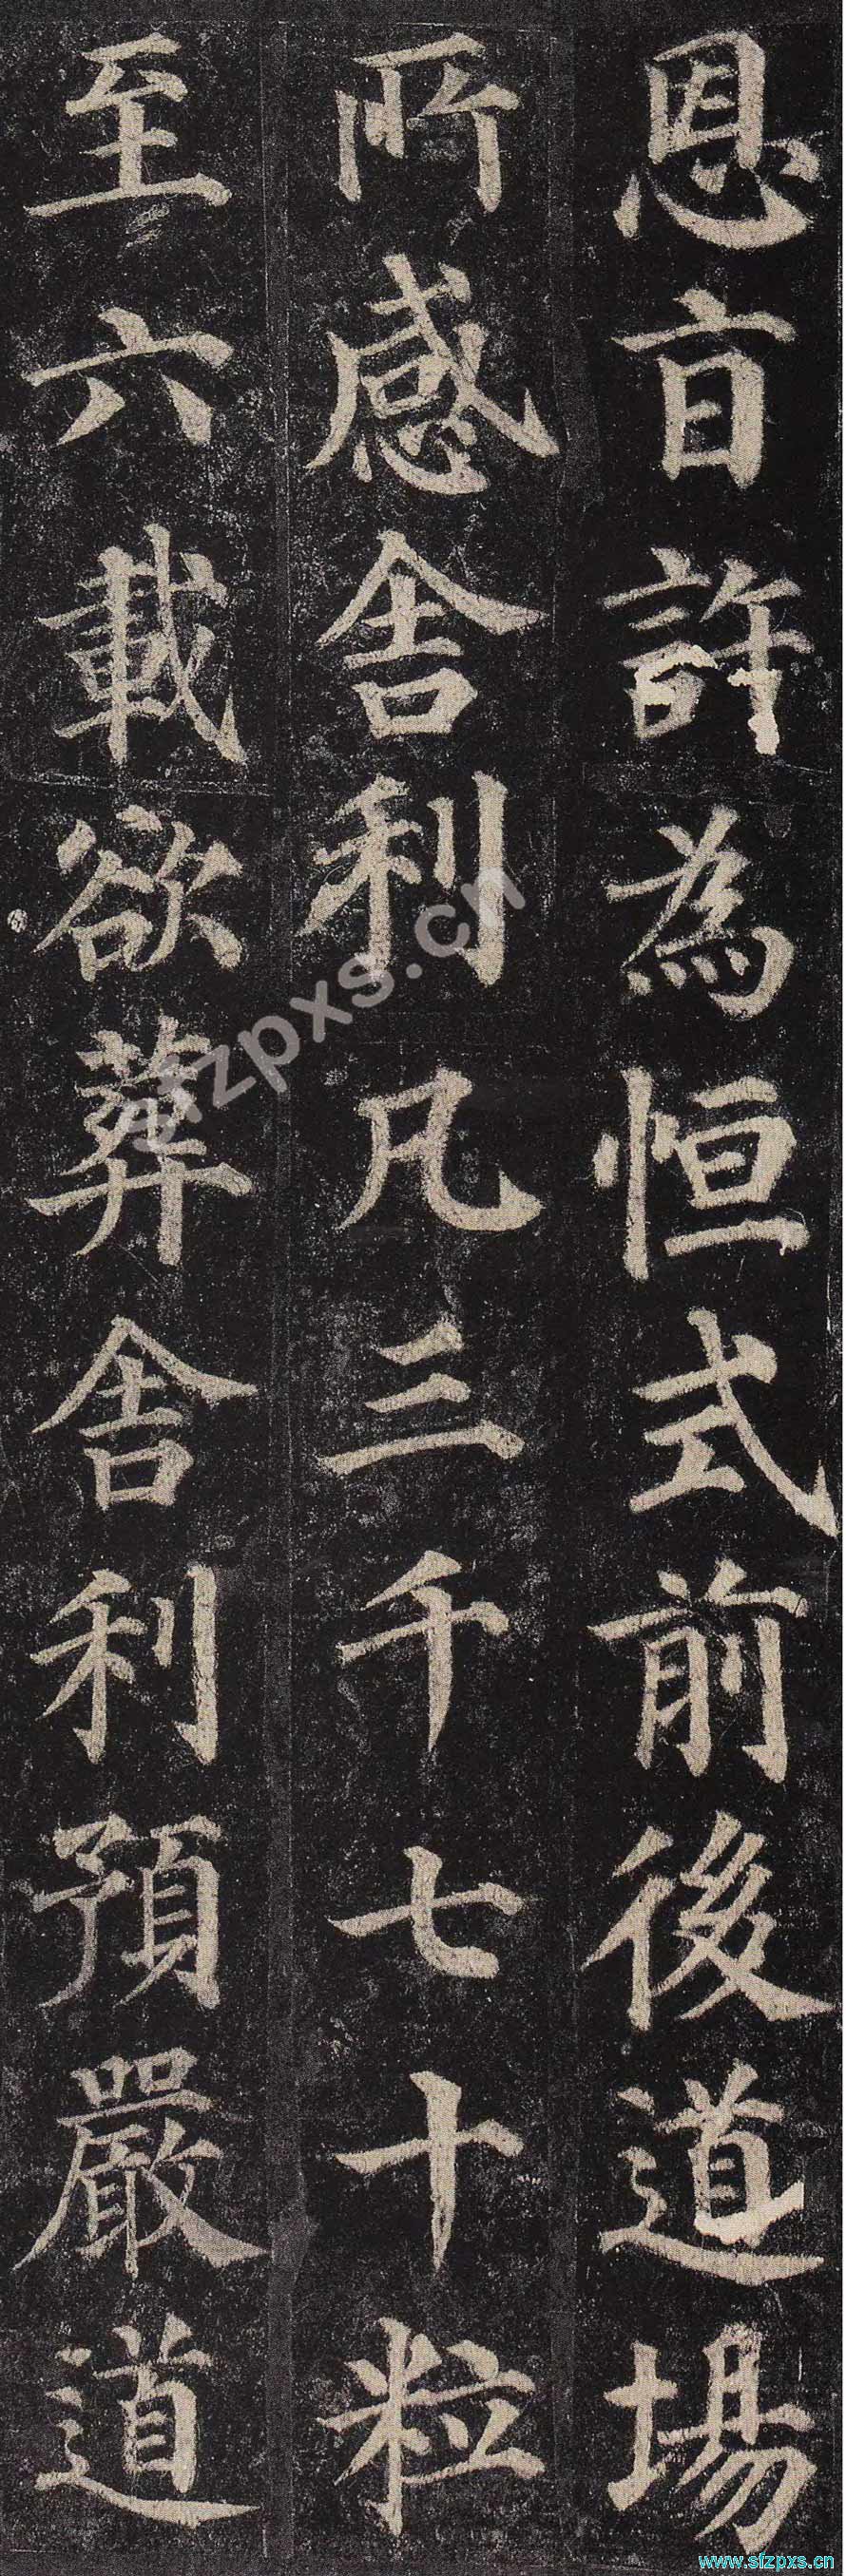 恩旨許為恒式前後道場
所感舍利凡三千七十粒
至六載欲葬舍利預嚴道
sfzpxs.cn
www.sfzpxs.cn